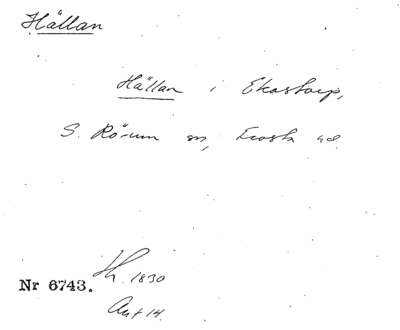 Hällan
Hällan i Ekastorp,
S. Rörum sn, Frosta hd
Nr 6743.
1830
Ant 14